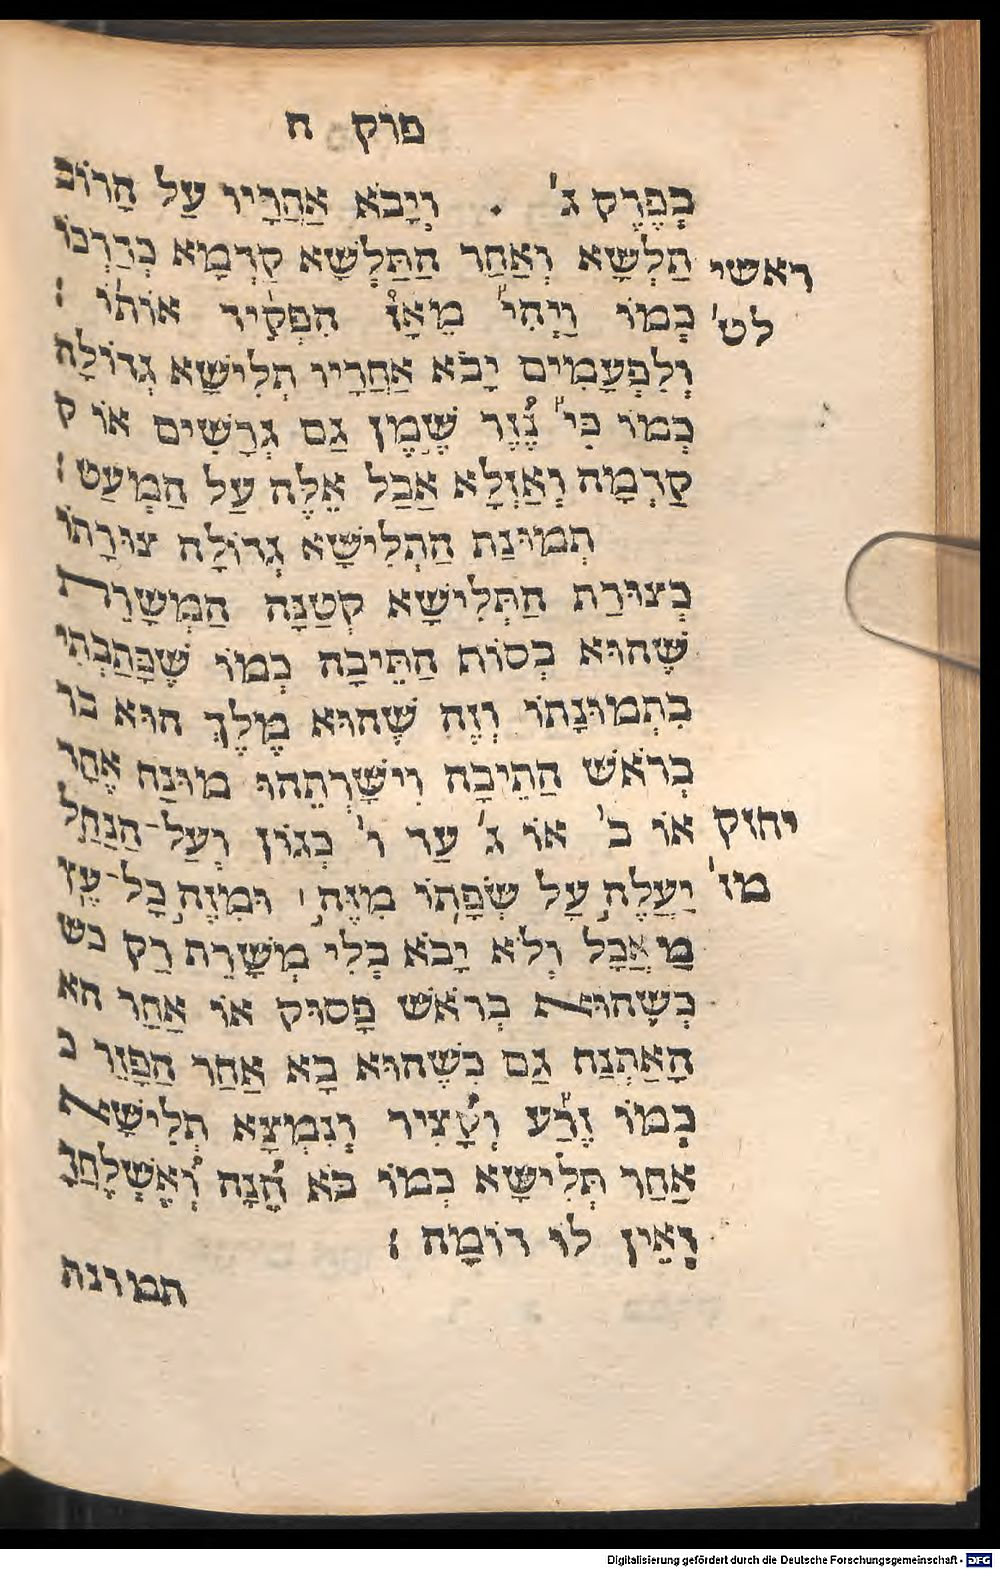 פרק ח
בְּפֶרֶק ג' . וְיָבֹא אַחֲרָיו עַל הָרוֹב
תַלְשָׁא וְאַחַר הַתַּלְשָׁא קַדְמָא כְדַרְכּוֹ
כְּמוֹ וַיְהִי מֵאָז הִפְקִיד אוֹתוֹ :
וְלִפְעָמִים יָבֹא אַחֲרָיו תְלִישָׁא גְדוֹלָה
כְּמוֹ כִּי נֵזֶר שֶׁמֶן גַם גְרָשִׁים אוֹ ק
קַדְמָה וְאַזְלָא אֲבָל אֵלֶה עַל הַמְעַט :
תְמוּנַת הַתְלִישָׁא גְדוֹלָה צוּרָתוֹ
כְּצוּרַת הַתְּלִישָׁא קְטַנָּה הַמְשָׁרֵת
שֶׁהוּא בְסוֹת הַתֵּיבָה כְמוֹ שֶׁכָּתַבְתִּי
בִתְמוּנָתוֹ וְזֶה שֶׁהוּא מֶלֶךְ הוּא בר
בְּרֹאשׁ הַתֵיבָה וִישָׁרְתֵהוּ מוּנַח אֶחָד
אוֹ ב' אוֹ ג' עַד ו' כְּגוֹן וְעַל־הַנַחַל
יַעֲלֶה עַל שְׂפָתוֹ מִזֶה וּמִזֶה כָל־עֵץ
מַאֲכָל וְלֹא יָבֹא בְּלִי מְשָׁרֵת רַק כש
כְּשֶׁהוּא בְרֹאשׁ פָסוּק אוֹ אַחַר הא
הָאַתְנַח גַם כְּשֶׁהוּא בָא אַחַר הַפָּזֵר כ
כְּמוֹ זֶרַע וְקָצִיר וְנִמְצָא תְלִישָׁא
אַחַר תְּלִישָׁא כְּמוֹ בֹּא הֵנָה וְאֶשְׁלָחֲךָ
וְאֵין לוֹ דוֹמֶה :
תמונת
ראשי
לט'
יחזק
מז'
Digitalisierung gefördert durch die Deutsche Forschungsgemeinschaft - DFG